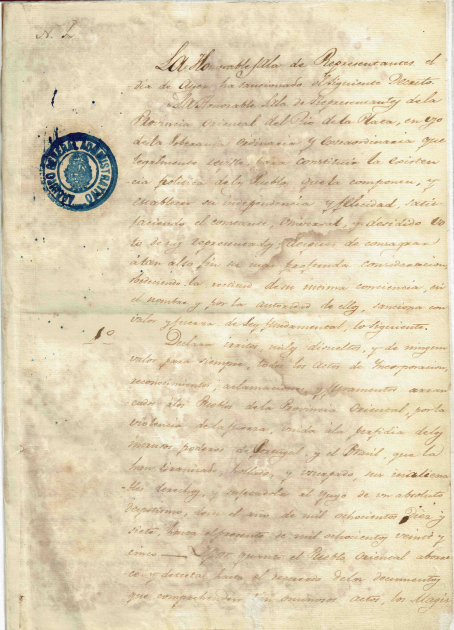 La Honorable Sala de Representantes el
dia de Ayer ha sancionado el siguiente Decreto
La Honorable Sala de Representantes de la
Provincia Oriental del Rio de la Plata, en uso
de la Soberania Ordinaria y Extraordinaria que
legalmente para constituir la existen
cia politica de los Pueblos que la componen, y
establecer su independencia y felicidad, satis
faciendo el constante, universal, y decidido vo
to de sus representados; despues de consagrar
á tan alto fin su mas profunda consideracion,
obedeciendo la rectitud de su intima conciencia, en
el nombre y por la autoridad de ellos, sanciona con
valor y fuerza de ley fundamental, lo siguiente.
1o
Declara irritos, nulos, disueltos, y de ningun
valor para siempre, todos los Actos de Incorporacion,
reconocimientos, aclamaciones y Juramentos arran
cados a los Pueblos de la Provincia Oriental, por la
violencia de la fuerza, unida a la perfidia de los
intrusos poderes de Portugal, y el Brasil, que la
han tiranizado, hollado, y usurpado sus inaliena
bles derechos, y sujetandola al yugo de un absoluto
despotismo, desde el año de mil ochocientos diez y
siete, hasta el presente de mil ochocientos veinte y
cinco — Y por quanto el Pueblo Oriental aborrece
y detesta, hasta el recuerdo de los documentos
que comprehenden tan ominosos actos, los Magis
ADMINISTRATIVO